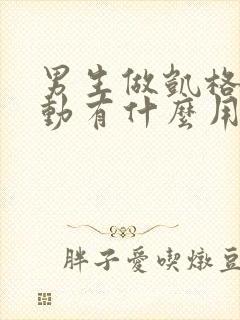 男生做凱格
動有什麼用
胖子愛喫燉豆